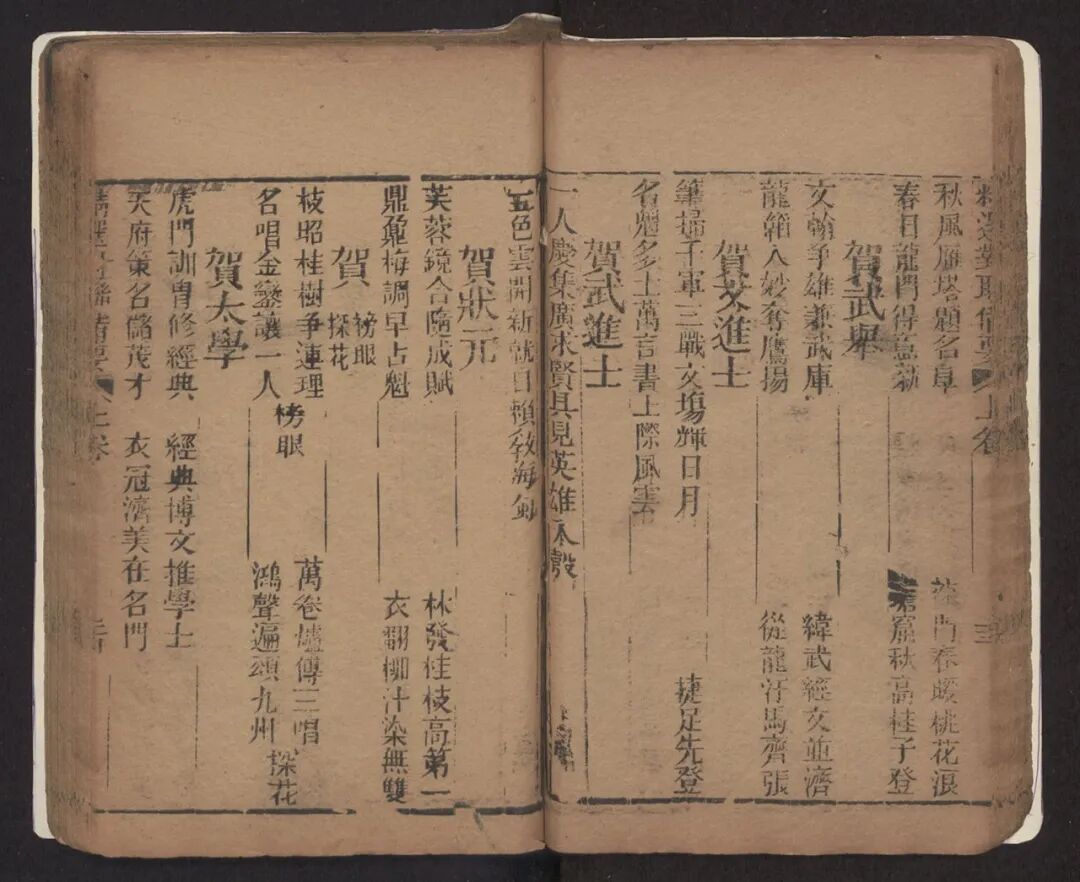 精選對聯備要 上卷
秋風雁塔題名草 春暖桃花浪
春日龍門得意新 窟秋高桂子登
賀武舉
文翰爭雄兼武庫 緯武經文並濟
龍韜入妙奪鷹揚 從龍汗馬齊張
賀文進士
筆掃千軍三戰文塲輝日月 捷足先登
名魁多士萬言書上際風雲
賀武進士
一人慶集廣求賢具見英雄入彀
五色雲開新就日賴敎海
賀狀元
芙蓉鏡合隨成賦 林發桂枝高第一
鼎鼐梅調早占魁 衣翻柳汁染無雙
賀 榜眼 探花
枝昭桂樹爭連理 榜眼 萬卷爐傳三唱 探花
名唱金鑾讓一人 鴻聲遍頌九州
賀太學
虎門訓胄修經典 經典博文推學士
天府策名儲茂才 衣冠濟美在名門
精選對聯備要 上卷